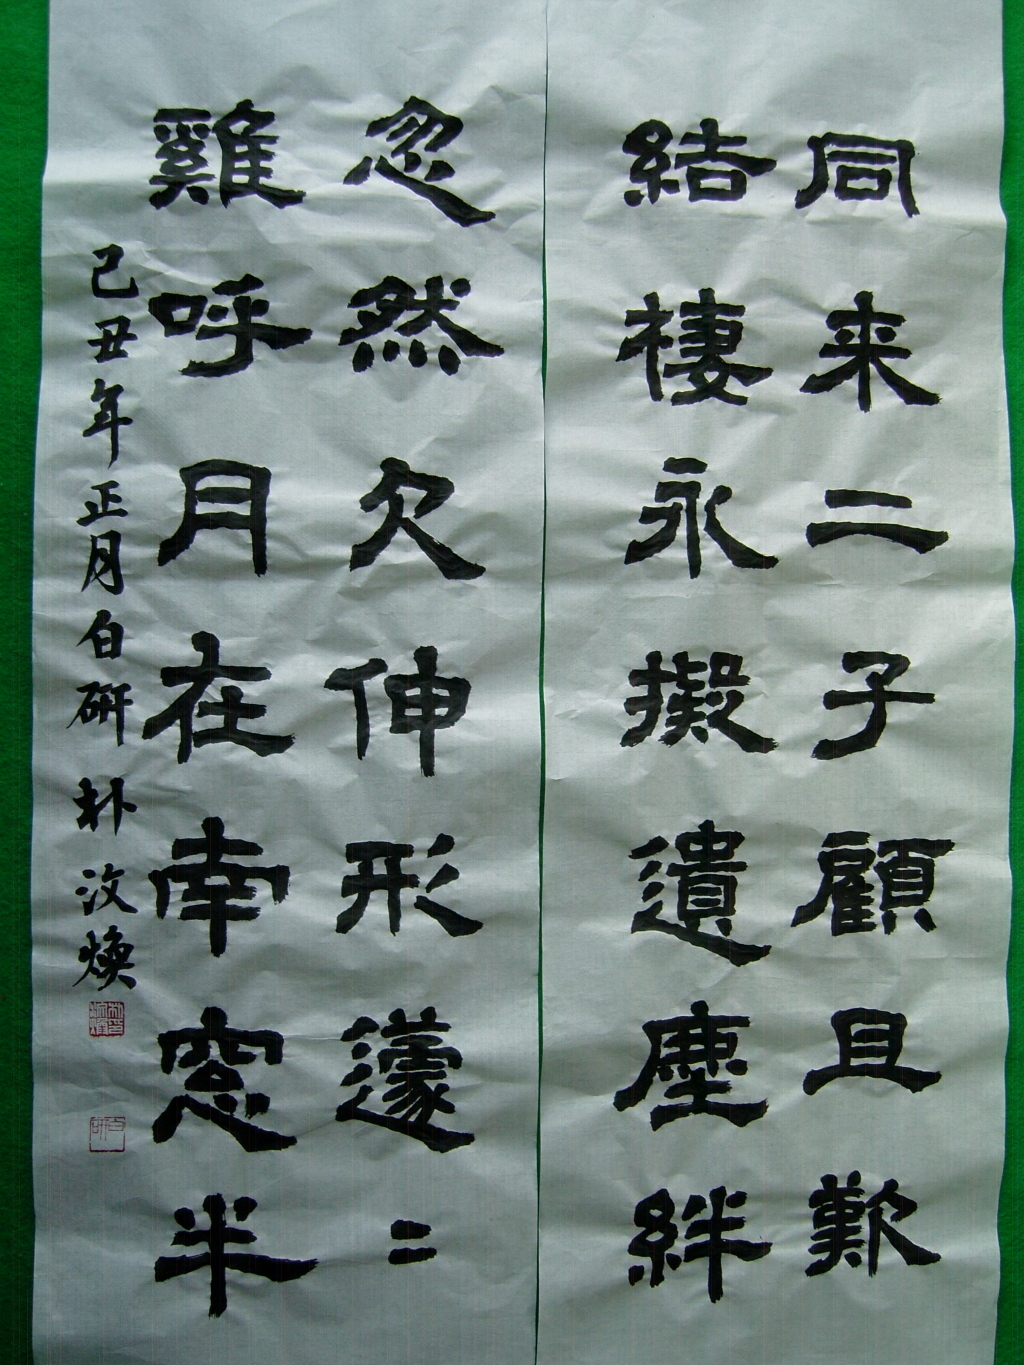 同来二子顧且歎
結棲永擬遺塵絆
忽然欠伸形蘧〻
雞呼月在南窓半
己丑年正月白硏朴汶煥